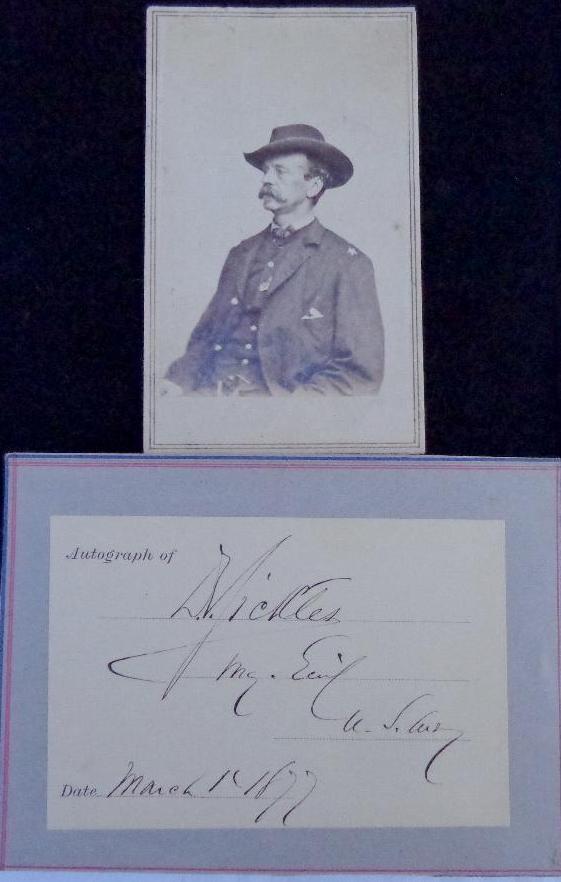 Autograph of
D. Sickles
Maj. Genl
U. S. Army
Date March 1st 1877